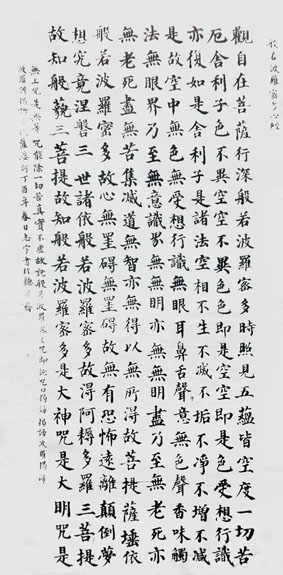 般若波羅蜜多心經
觀自在菩薩行深般若波羅密多時照見五蘊皆空度一切苦
厄舍利子色不異空空不異色色即是空空即是色受想行識
亦復如是舍利子是諸法空相不生不滅不垢不淨不增不減
是故空中無色無受想行識無眼耳鼻舌聲意無色聲香味觸
法無眼界乃至無意識界無無明亦無無明盡乃至無老死亦
無老死盡無苦集滅道無智亦無得以無所得故菩提薩埵依
般若波羅密多故心無罣礙無罣礙故無有恐怖遠離顛倒夢
想究竟涅槃三世諸依般若波羅密多故得阿耨多羅三菩提
故知般藐三菩提故知般若波羅密多是大神咒是大明咒是
無上咒是無等等咒能除一切苦真實不虛故說般若波羅蜜多咒即說咒曰揭諦揭諦波羅揭諦
波羅僧揭諦薩婆訶丁酉年春日志宇書於齋